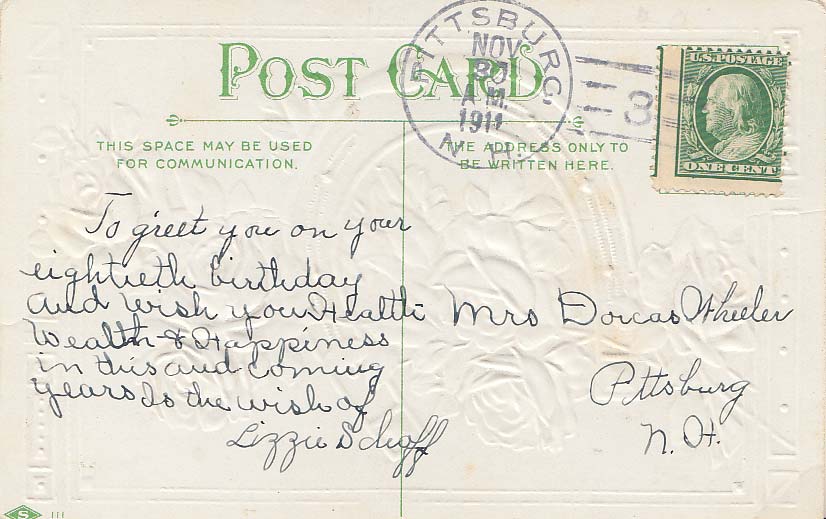 POST CARD
PITTSBURG,
NOV
30
A.M.
1911
N. H.
3
U.S. POSTAGE
ONE CENT
THIS SPACE MAY BE USED
FOR COMMUNICATION.
THE ADDRESS ONLY TO
BE WRITTEN HERE.
To greet you on your
eightieth birthday
and wish you Health
Wealth & Happiness
in this and coming
years Is the wish of
Lizzie Schoff
Mrs Dorcas Wheeler
Pittsburg
N. H.
S
111